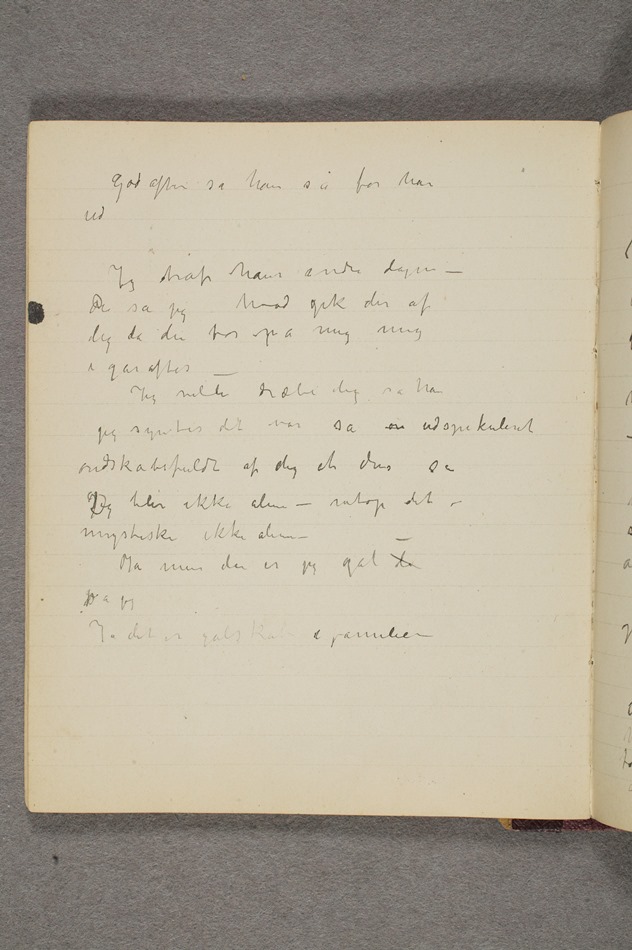 God aften sa han så for han
ud
Jeg traf ham andre dagen —
De sa jeg hvad gik der af
dig da du for op a mig mig
i går aftes —
Jeg vilde dræbe dig sa han
jeg syntes det var sa en udspekuleret
ondskabsfuldt af dig at du sa
Jeg blir ikke alene — netop det –
mystiske ikke alene —
Ha men da er jeg gal da
sa jeg
Ja det er galskab i familien